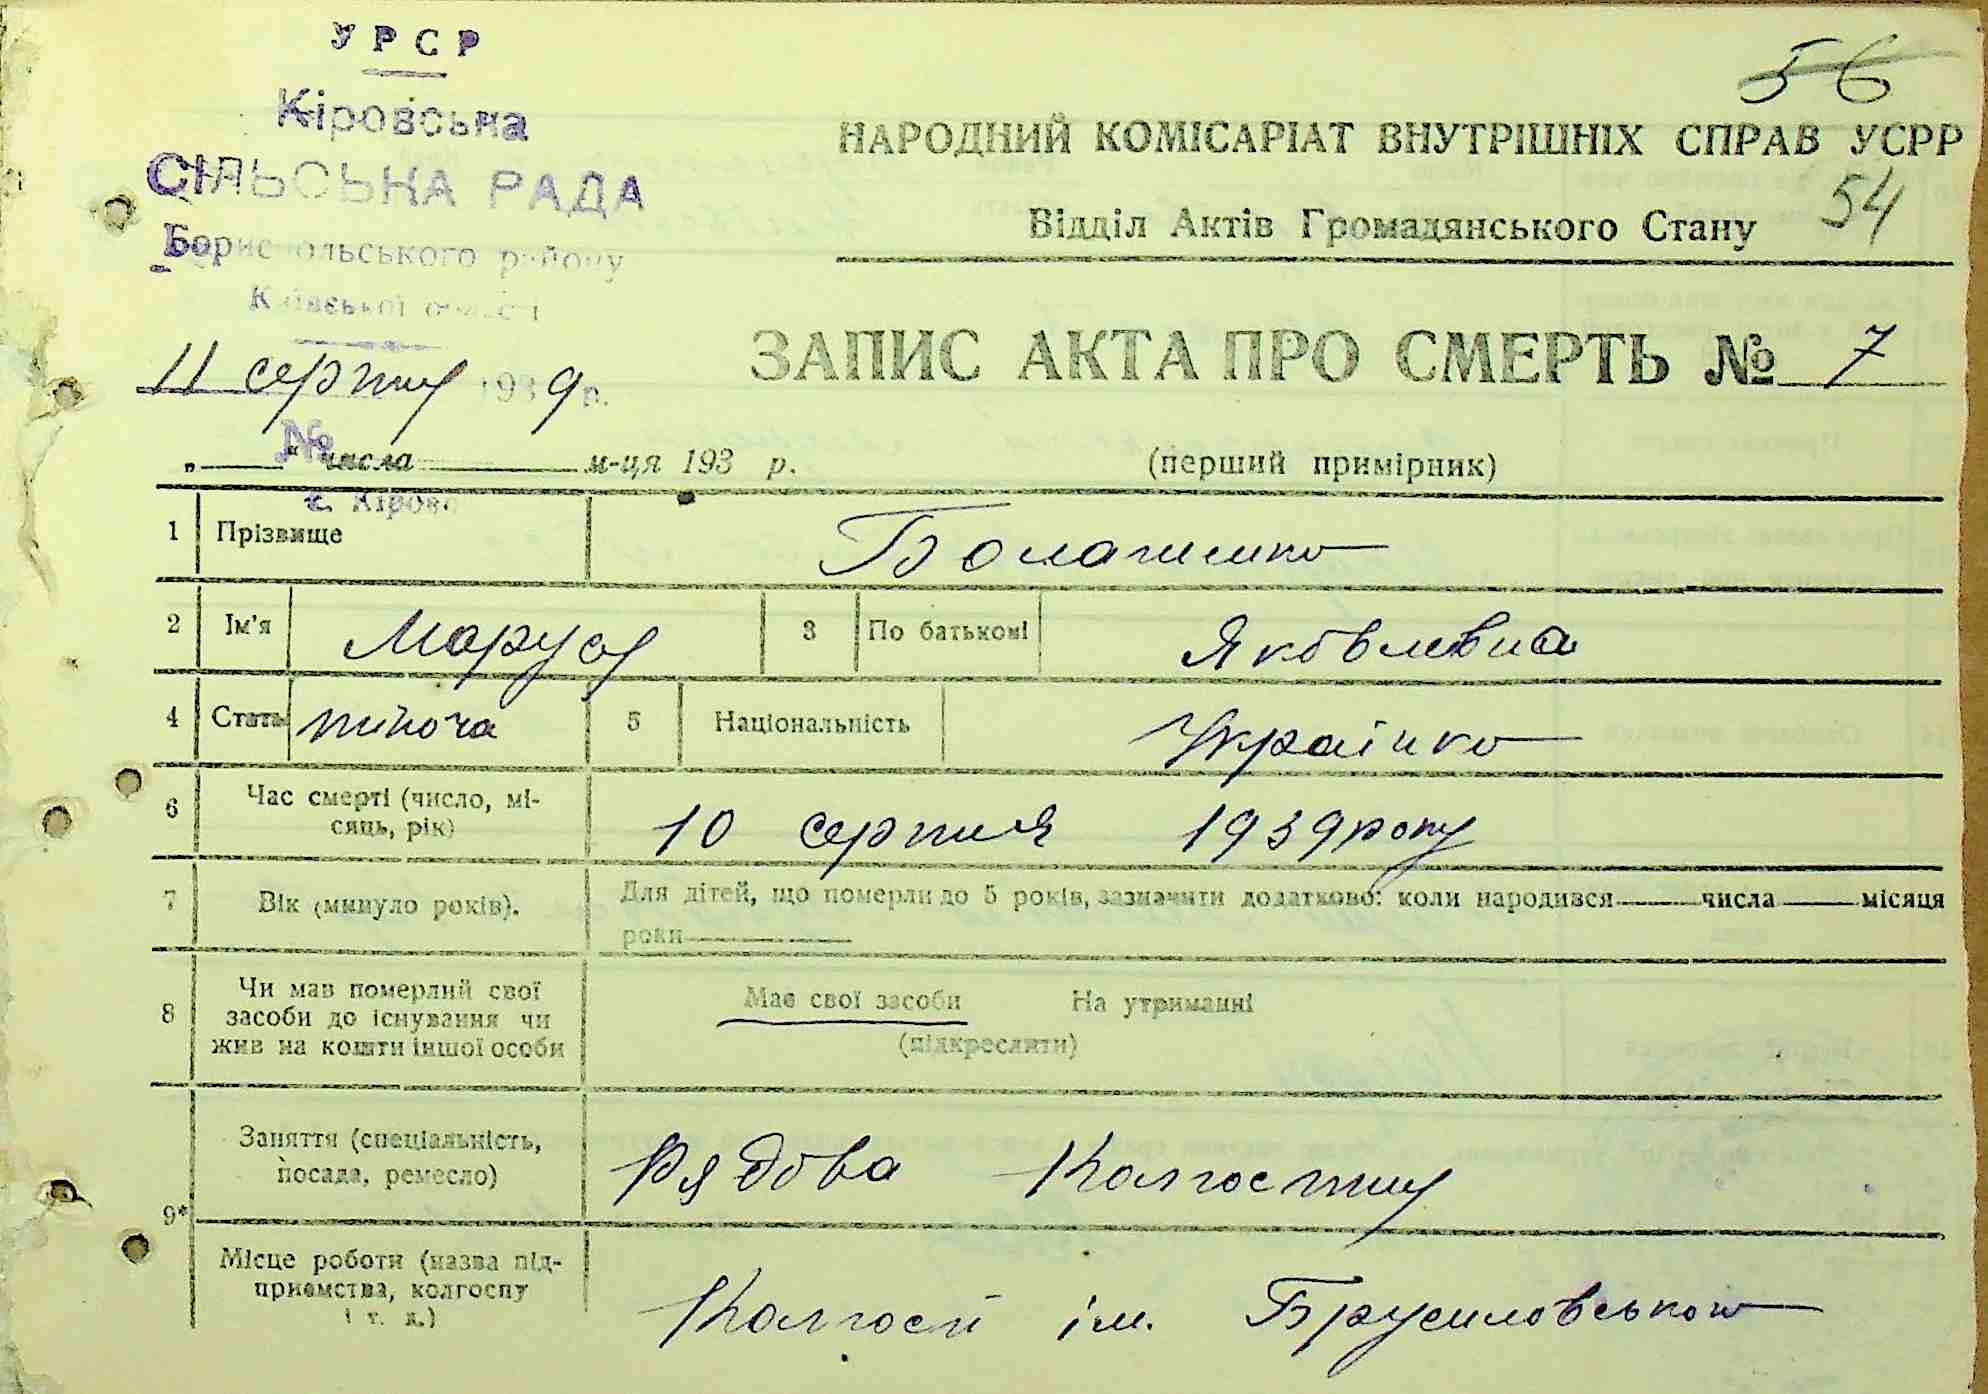 УРСР
Кіровська
СІЛЬСЬКА РАДА
Бориспольського району
Київської області
11 серпня 1939 р.
№
с. Кірово
56
НАРОДНИЙ КОМІСАРІАТ ВНУТРІШНІХ СПРАВ УСРР
54
Відділ Актів Громадянського Стану
ЗАПИС АКТА ПРО СМЕРТЬ № 7
„ “ числа м-ця 193 р.
(перший примірник)
1 Прізвище
2 Ім'я Маруся 3 По батькові Яковлевна
4 Стать жіноча 5 Національність Українка
6 Час смерті (число, мі-
сяць, рік) 10 серпня 1939 року
7 Вік (минуло років). Для дітей, що померли до 5 років, зазначити додатково: коли народився числа місяця
роки
8 Чи мав померлий свої
засоби до існування чи
жив на кошти іншої особи
Має свої засоби На утриманні
(підкреслити)
9* Заняття (спеціальність,
посада, ремесло) Рядова колгоспу
Місце роботи (назва під-
приємства, колгоспу
і т. д.) Колгосп ім. Брусиловського